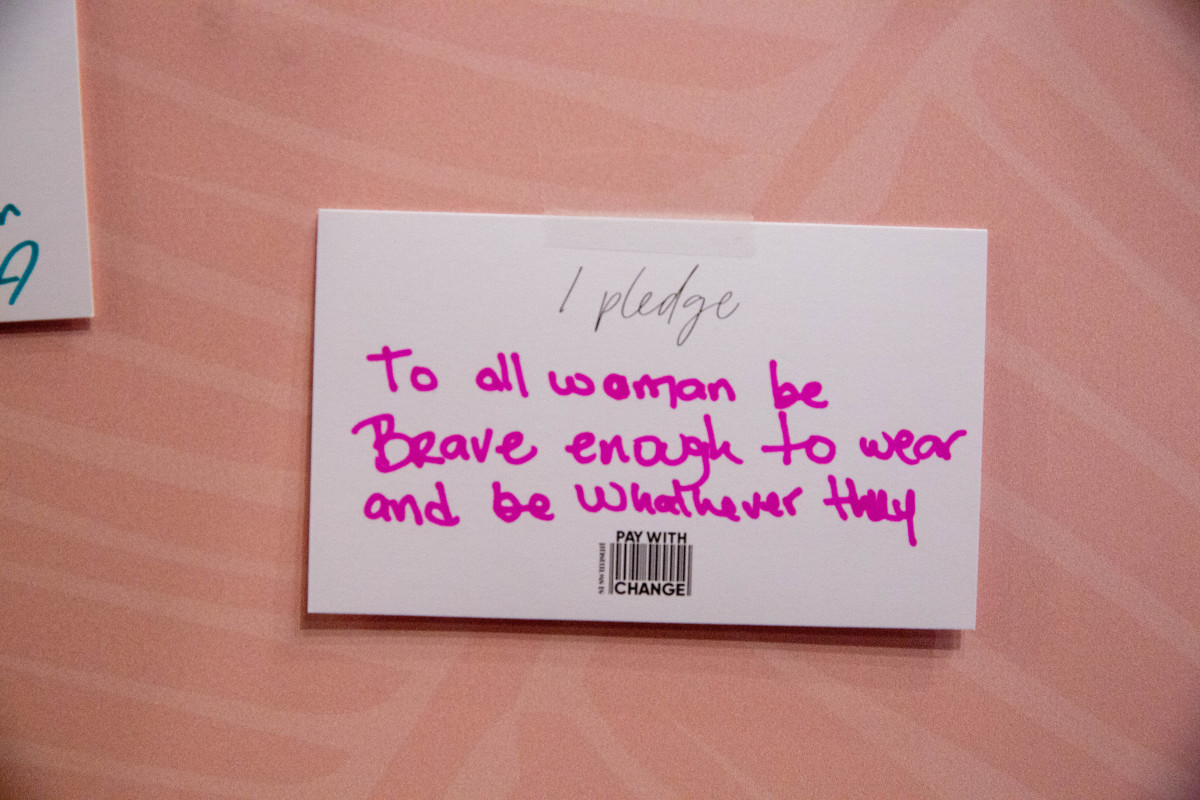 I pledge
To all woman be
Brave enough to wear
and be Whathever they
PAY WITH
CHANGE